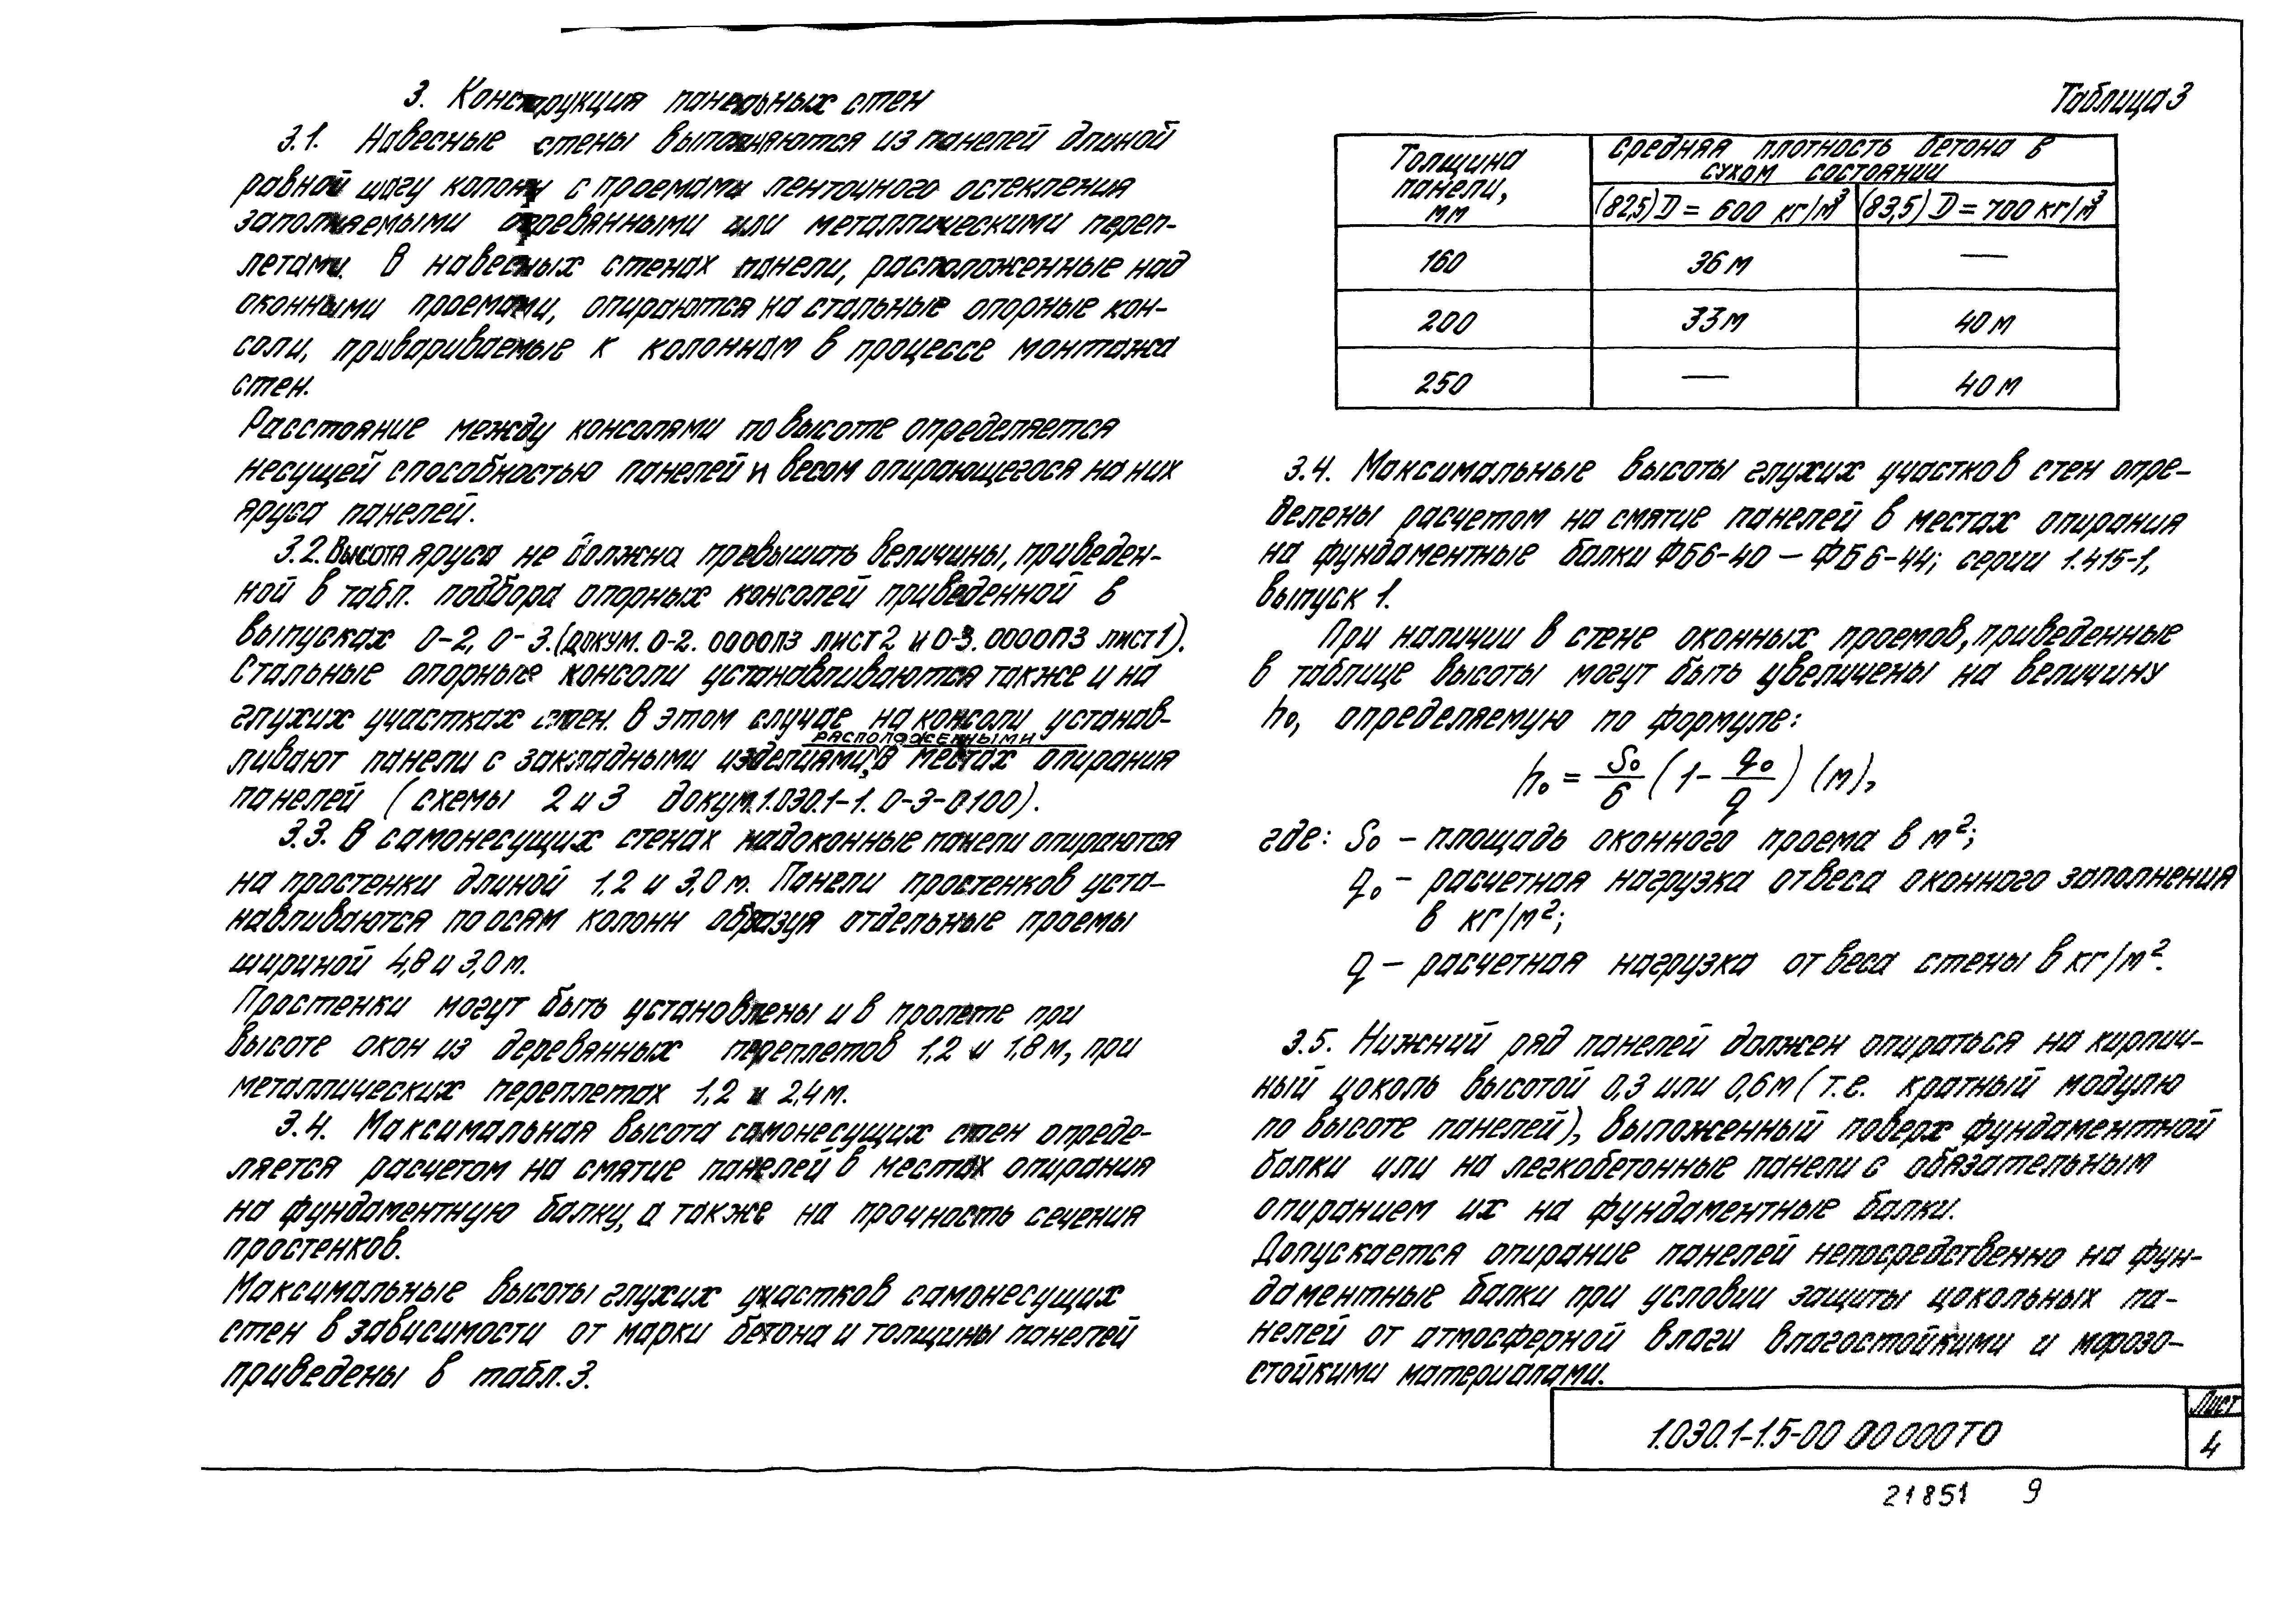 3. Конструкция панельных стен
3.1. Навесные стены выполняются из панелей длиной
равной шагу колонн с проемами ленточного остекления
заполняемыми деревянными или металлическими переп-
летами. В навесных стенах панели, расположенные над
оконными проемами, опираются на стальные опорные кон-
соли, привариваемые к колоннам в процессе монтажа
стен.
Расстояние между консолями по высоте определяется
несущей способностью панелей и весом опирающегося на них
яруса панелей.
3.2. Высота яруса не должна превышать величины, приведен-
ной в табл. подбора опорных консолей приведенной в
выпусках 0-2, 0-3. (докум. 0-2. 0000ПЗ лист 2 и 0-3. 0000ПЗ лист 1).
Стальные опорные консоли устанавливаются также и на
глухих участках стен. В этом случае на консоли устанав-
ливают панели с закладными изделиями, расположенными в местах опирания
панелей (схемы 2 и 3 докум. 1.030.1-1. 0-3-0100).
3.3. В самонесущих стенах надоконные панели опираются
на простенки длиной 1,2 и 3,0 м. Панели простенков уста-
навливаются по осям колонн образуя отдельные проемы
шириной 4,8 и 3,0 м.
Простенки могут быть установлены и в пролете при
высоте окон из деревянных переплетов 1,2 и 1,8 м, при
металлических переплетах 1,2 и 2,4 м.
3.4. Максимальная высота самонесущих стен опреде-
ляется расчетом на смятие панелей в местах опирания
на фундаментную балку, а также на прочность сечения
простенков.
Максимальные высоты глухих участков самонесущих
стен в зависимости от марки бетона и толщины панелей
приведены в табл. 3.
Таблица 3
Толщина панели, мм
средняя плотность бетона в сухом состоянии
(82,5) D = 600 кг/м³ (83,5) D = 700 кг/м³
160 36 м —
200 33 м 40 м
250 — 40 м
3.4. Максимальные высоты глухих участков стен опре-
делены расчетом на смятие панелей в местах опирания
на фундаментные балки ФБ6-40 — ФБ6-44; серии 1.415-1,
выпуск 1.
При наличии в стене оконных проемов, приведенные
в таблице высоты могут быть увеличены на величину
h₀, определяемую по формуле:
h₀ = S₀/6 (1 - q₀/q) (м),
где: S₀ - площадь оконного проема в м²;
q₀ - расчетная нагрузка от веса оконного заполнения
в кг/м²;
q - расчетная нагрузка от веса стены в кг/м².
3.5. Нижний ряд панелей должен опираться на кирпич-
ный цоколь высотой 0,3 или 0,6 м (т.е. кратный модулю
по высоте панелей), выложенный поверх фундаментной
балки или на легкобетонные панели с обязательным
опиранием их на фундаментные балки.
Допускается опирание панелей непосредственно на фун-
даментные балки при условии защиты цокольных па-
нелей от атмосферной влаги влагостойкими и морозо-
стойкими материалами.
1.030.1-1.5-00 00 000 ТО
Лист
4
21851 9